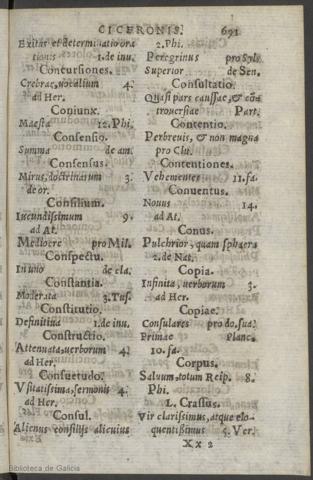 CICERONIS. 691
Exitus et determinatio ora
tionis 1.de inu.
Concursiones.
Crebrae, uocalium 4.
ad Her.
Coniunx.
Maesta 12. Phi.
Consensio.
Summa de am.
Consensus.
Mirus, doctrinarum 3.
de or.
Consilium.
Iucundissimum 9.
ad At.
Mediocre pro Mil.
Conspectu.
In uno de cla.
Constantia.
Moderata 3. Tus.
Constitutio.
Definitiua 1.de inu.
Constructio.
Attenuata, uerborum 4.
ad Her.
Consuetudo.
Vsitatissima, sermonis 4.
ad Her.
Consul.
Alienus consilijs alicuius
2. Phi.
Peregrinus pro Syl.
Superior de Sen.
Consultatio.
Quasi pars caussae, & cõn
trouersiae Part.
Contentio.
Perbreuis, & non magna
pro Clu.
Contentiones.
Vehementes 11. fa.
Conuentus.
Nouus 14.
ad At.
Conus.
Pulchrior, quam sphaera
2. de Nat.
Copia.
Infinita, uerborum 3.
ad Her.
Copiae.
Consulares pro do. sua.
Primae Planc.
10. fa.
Corpus.
Saluum, totum Reip. 8.
Phi.
L. Crassus.
Vir clarissimus, atque elo-
quentissimus 5. Ver.
Xx 2
Biblioteca de Galicia